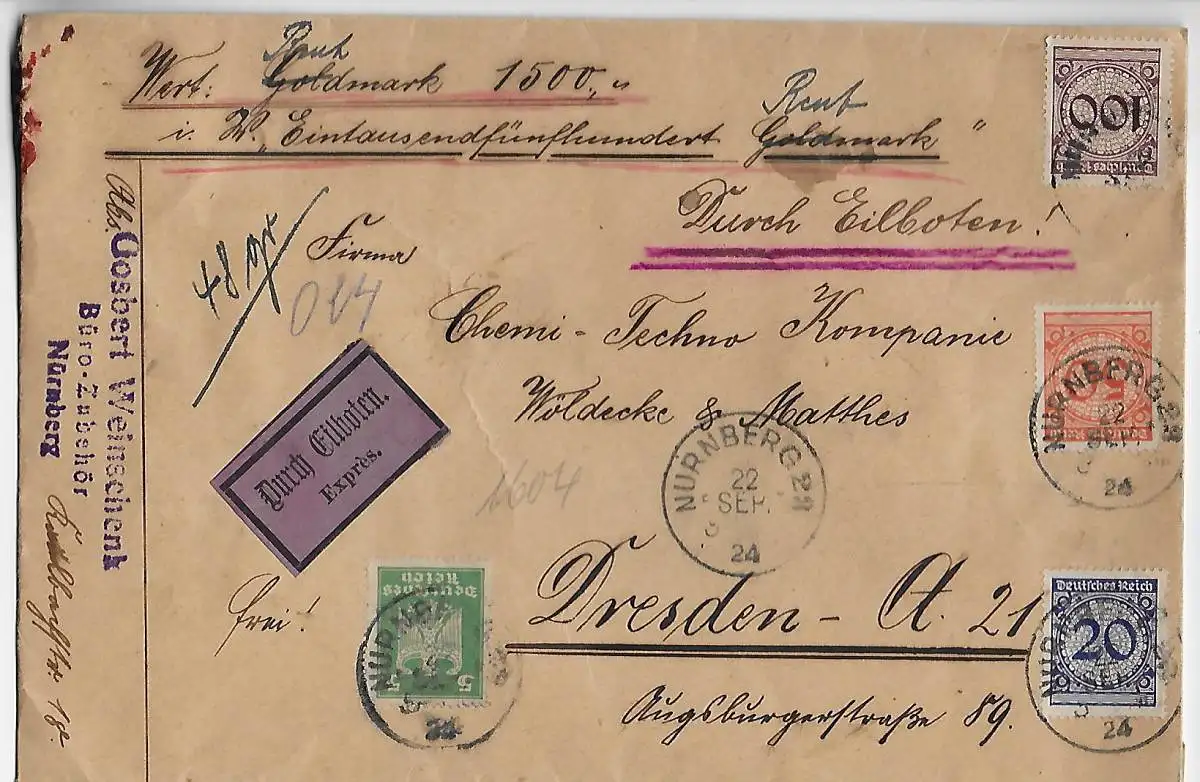 Rent Rent
Wert: Goldmark 1500,"
i. W. "Eintausendfünfhundert Goldmark"
Durch Eilboten!
48 gr
Firma
024
Chemi-Techno Kompanie
Wöldecke & Matthes
Durch Eilboten.
Exprès.
1604
frei!
Dresden - A. 21
Augsburgerstraße 89.
Abs.
Gosbert Weinschenk
Büro-Zubehör
Nürnberg
18.
100
Deutsches Reich
5
Deutsches Reich
20
NÜRNBERG 2
22
SEP.
24
NÜRNBERG 2
22
SEP.
24
NÜRNBERG
24
24